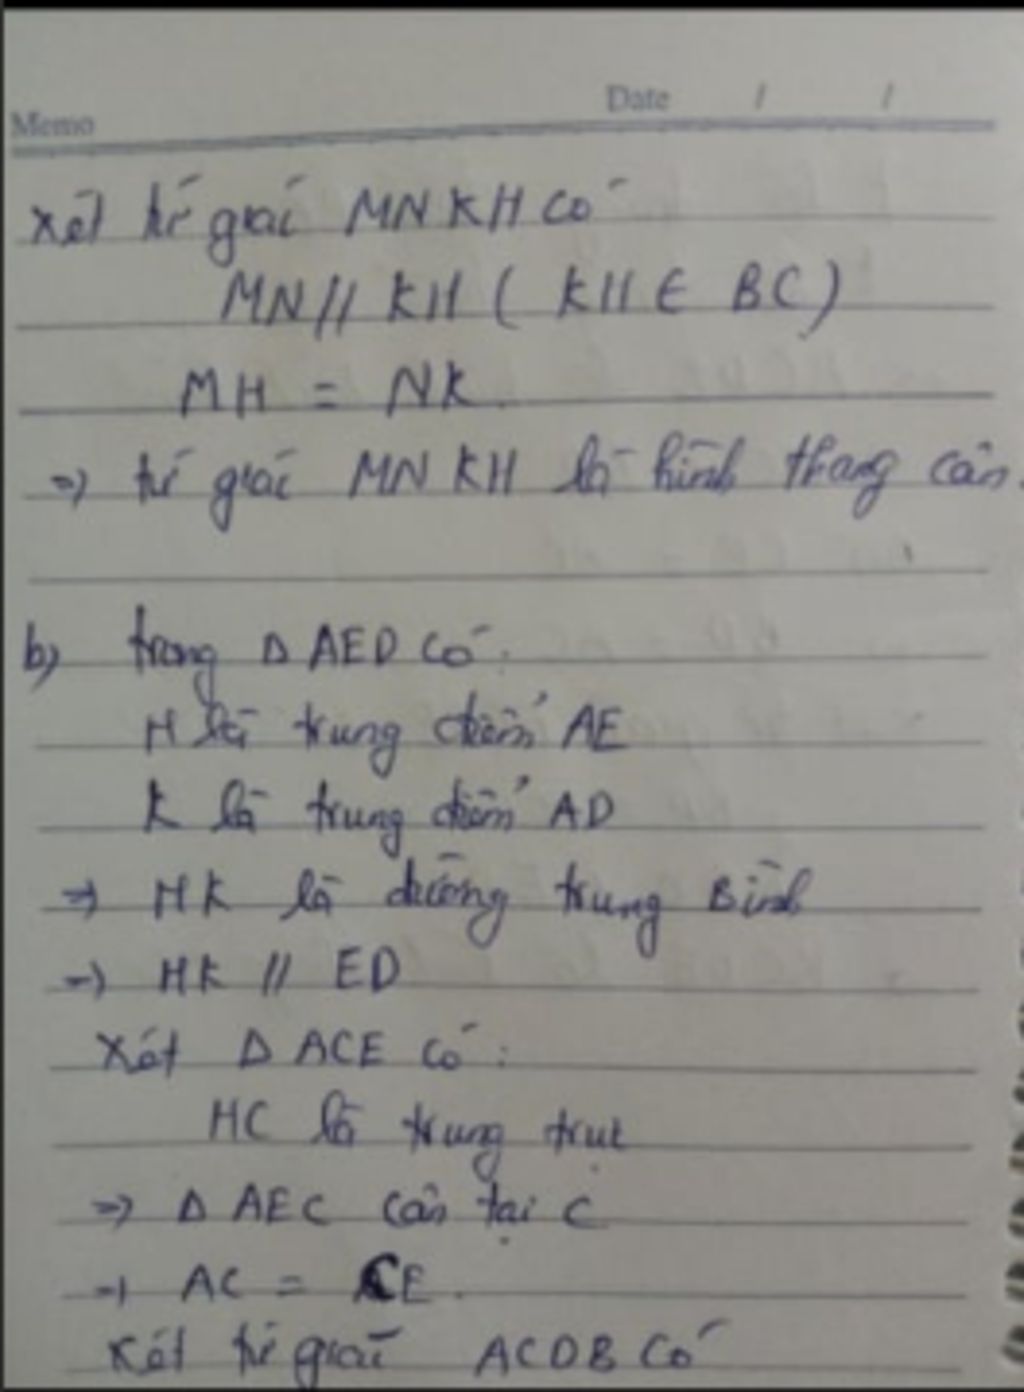 Memo
Date / /
Xét tứ giác MNKH có
MN // KH ( KH ∈ BC)
MH = NK.
=> tứ giác MNKH là hình thang cân.
b) trong Δ AED có:
H là trung điểm AE
K là trung điểm AD
=> HK là đường trung Bình
=> HK // ED
Xét Δ ACE có:
HC là trung trực
=> Δ AEC cân tại C
=> AC = CE.
Xét tứ giác ACDB có